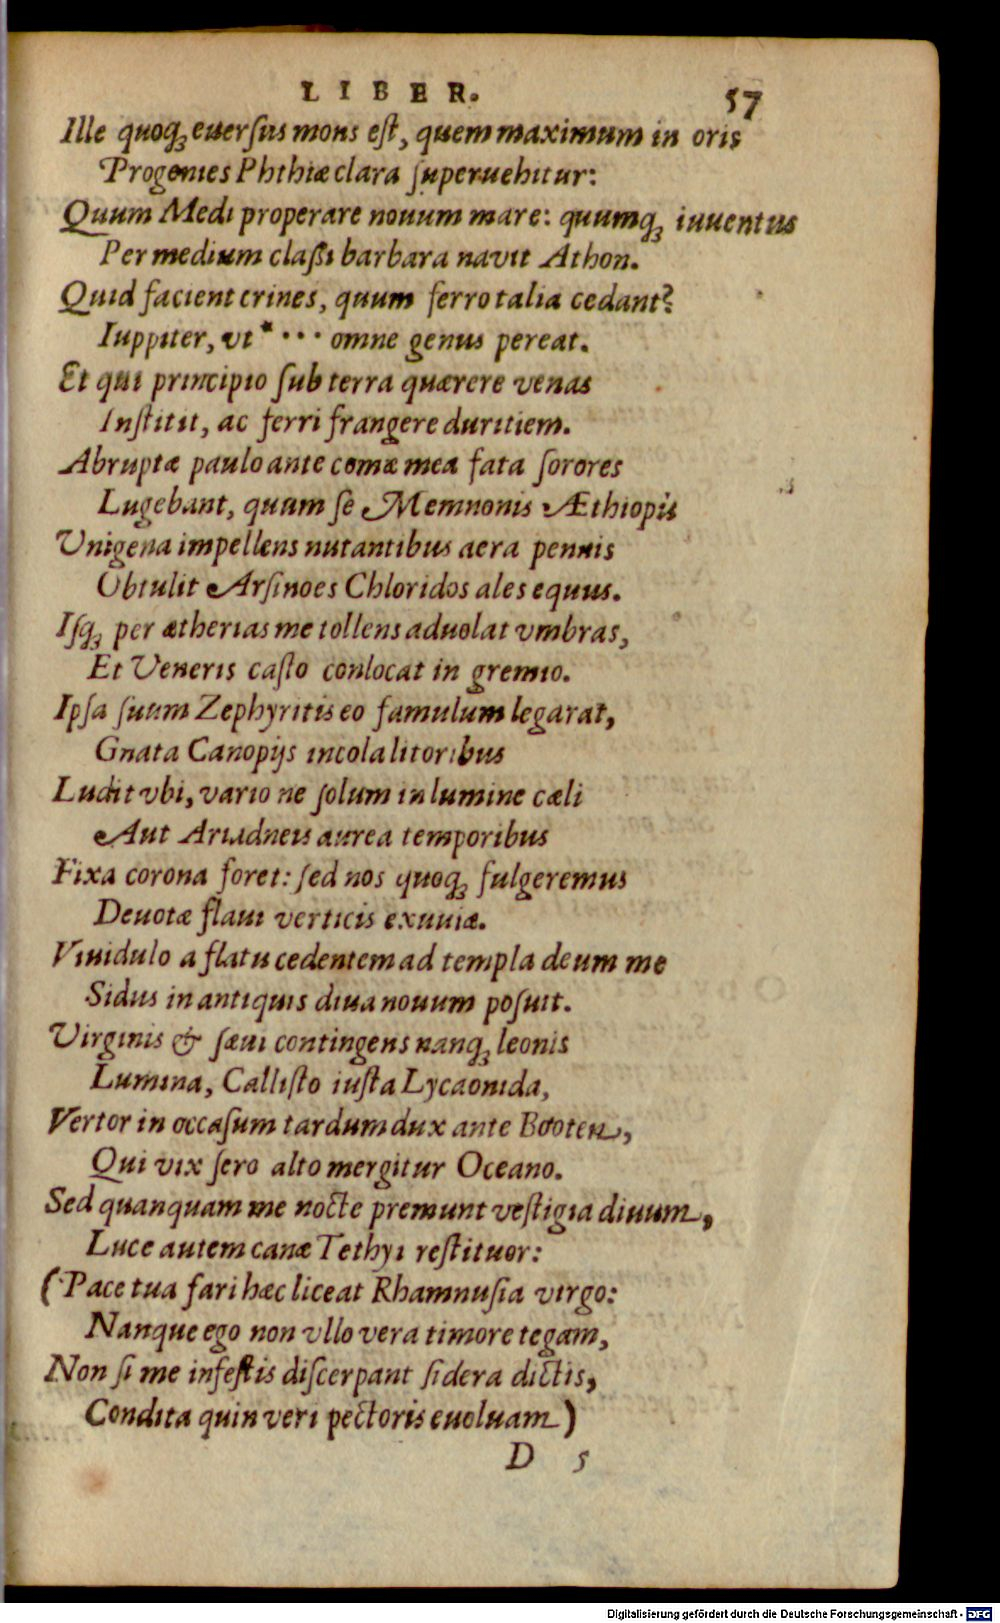 LIBER. 57
Ille quoq; euersus mons est, quem maximum in oris
Progenies Phthiæ clara superuehitur:
Quum Medi properare nouum mare: quumq; iuuentus
Per medium classi barbara navit Athon.
Quid facient crines, quum ferro talia cedant?
Iuppiter, vt * ··· omne genus pereat.
Et qui principio sub terra quærere venas
Institit, ac ferri frangere duritiem.
Abruptæ paulo ante comæ mea fata sorores
Lugebant, quum se Memnonis Æthiopis
Vnigena impellens nutantibus aera pennis
Obtulit Arsinoes Chloridos ales equus.
Isq; per ætherias me tollens aduolat vmbras,
Et Veneris casto conlocat in gremio.
Ipsa suum Zephyritis eo famulum legarat,
Gnata Canopijs incola litoribus
Ludit vbi, vario ne solum in lumine cæli
Aut Ariadneis aurea temporibus
Fixa corona foret: sed nos quoq; fulgeremus
Deuotæ flaui verticis exuuiæ.
Viuidulo a flatu cedentem ad templa deum me
Sidus in antiquis diua nouum posuit.
Virginis & sæui contingens nanq; leonis
Lumina, Callisto iusta Lycaonida,
Vertor in occasum tardum dux ante Booten,
Qui vix sero alto mergitur Oceano.
Sed quanquam me nocte premunt vestigia diuum,
Luce autem canæ Tethyi restituor:
(Pace tua fari hæc liceat Rhamnusia virgo:
Nanque ego non vllo vera timore tegam,
Non si me infestis discerpant sidera dictis,
Condita quin veri pectoris euoluam)
D 5
Digitalisierung gefördert durch die Deutsche Forschungsgemeinschaft - DFG